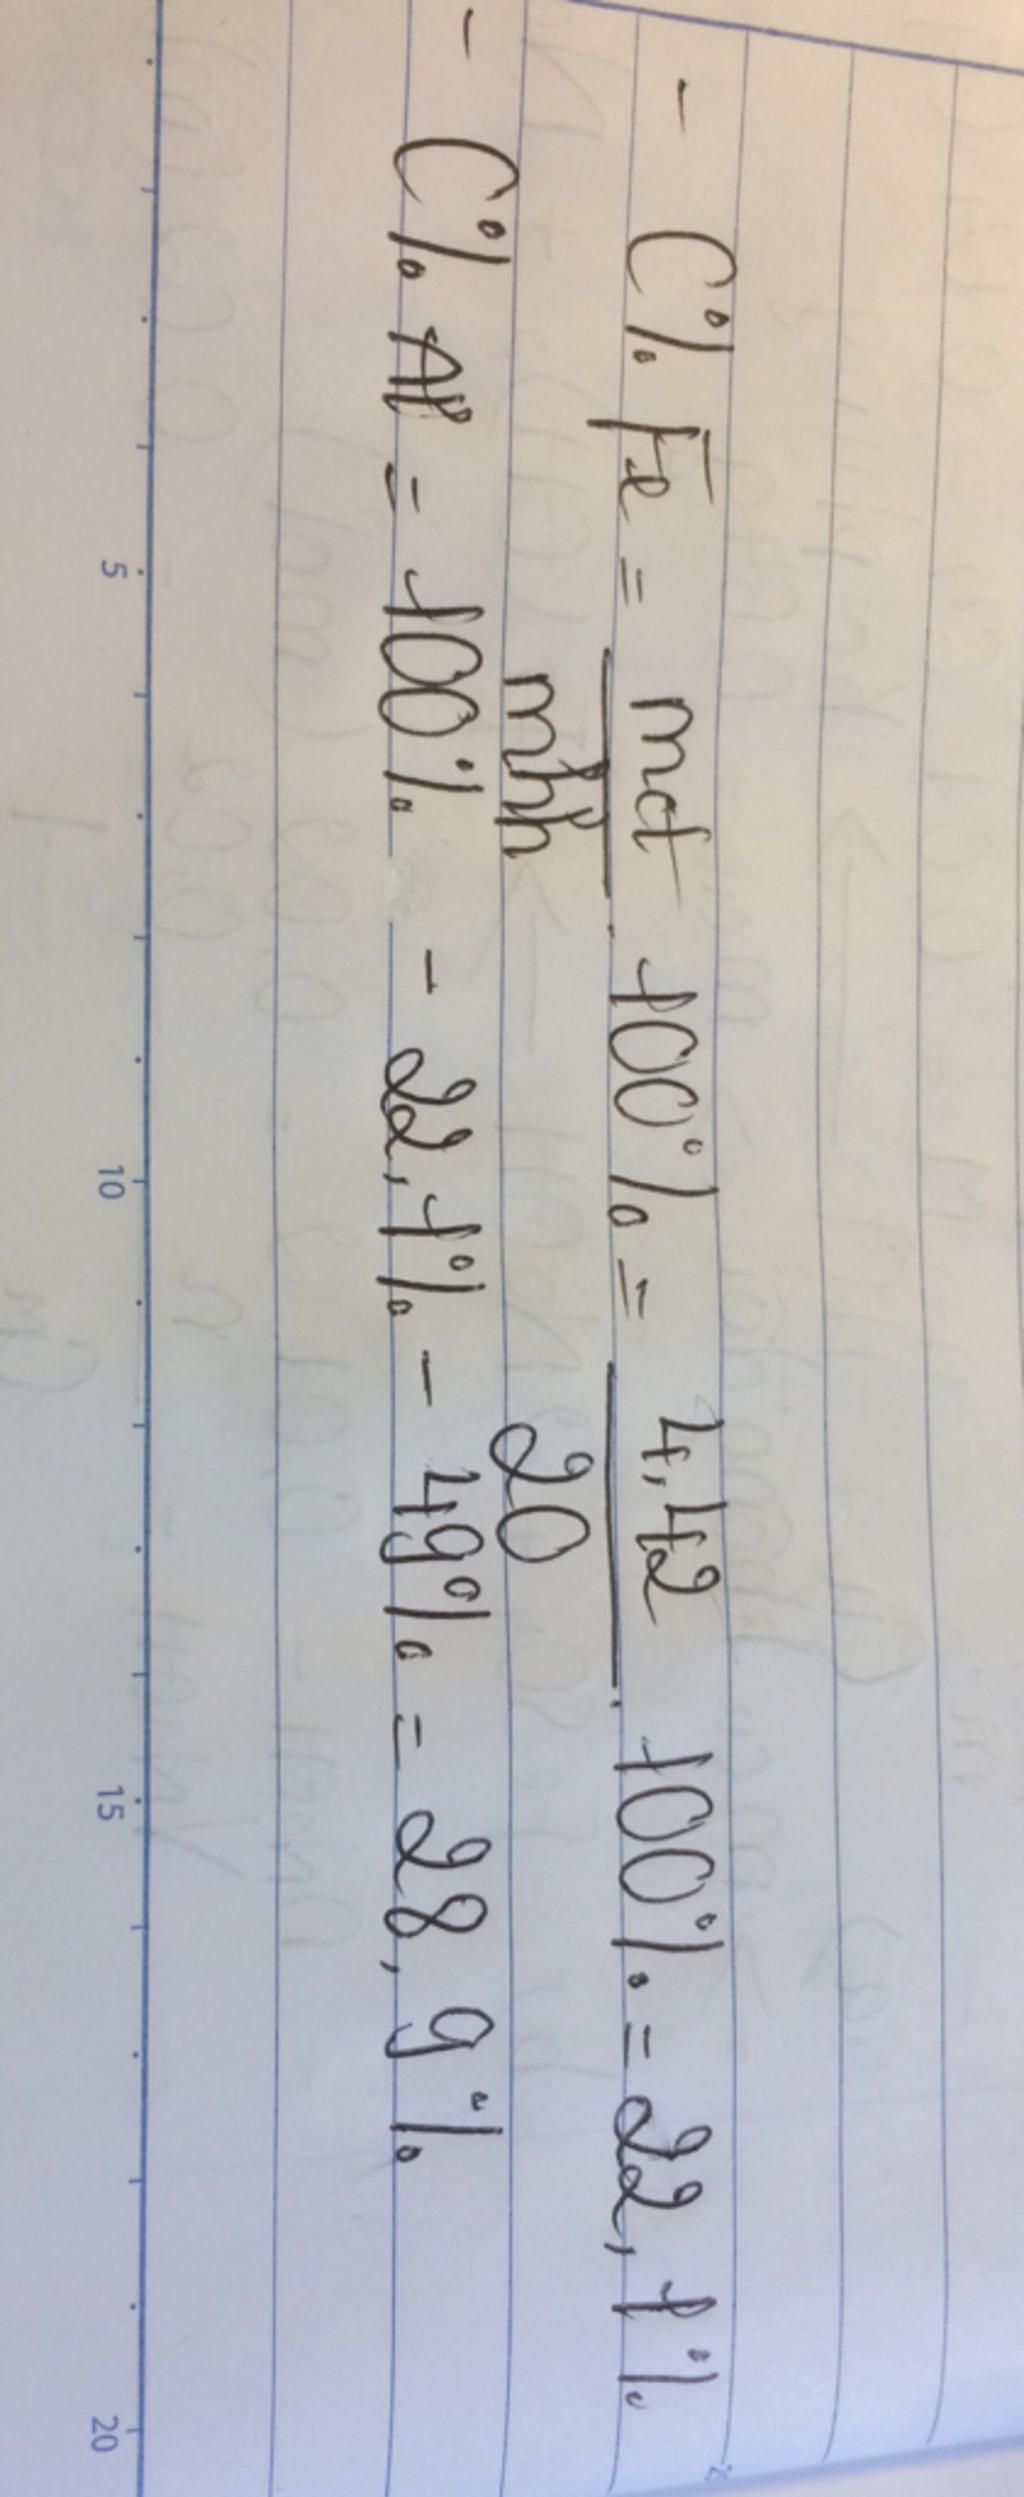 - C% Fe = mct/mhh . 100% = 4,42/20 . 100% = 22,1%
- C% Al = 100% - 22,1% - 49% = 28,9%
5 10 15 20